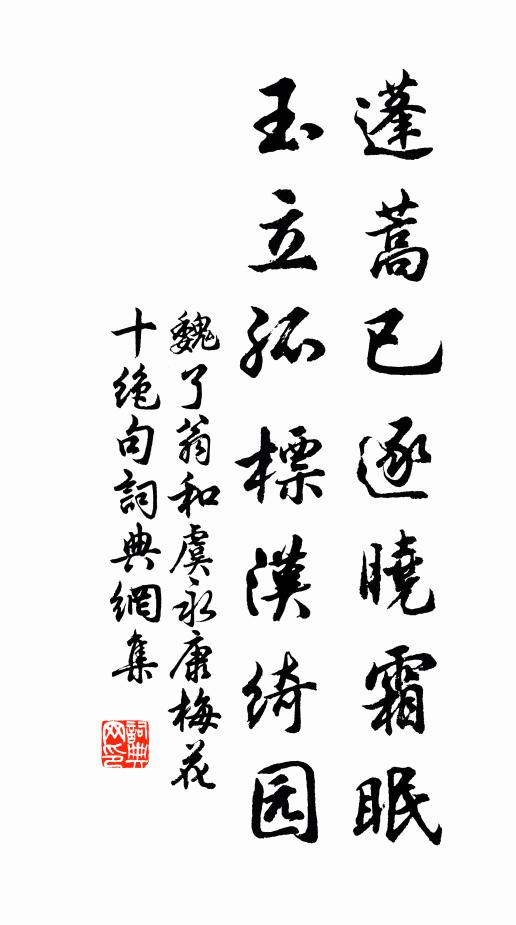 蓬蒿已逐曉霜眠
玉立孤標漢綺园
魏了翁和虞永康梅花
十绝句詞典網集
詞典网印